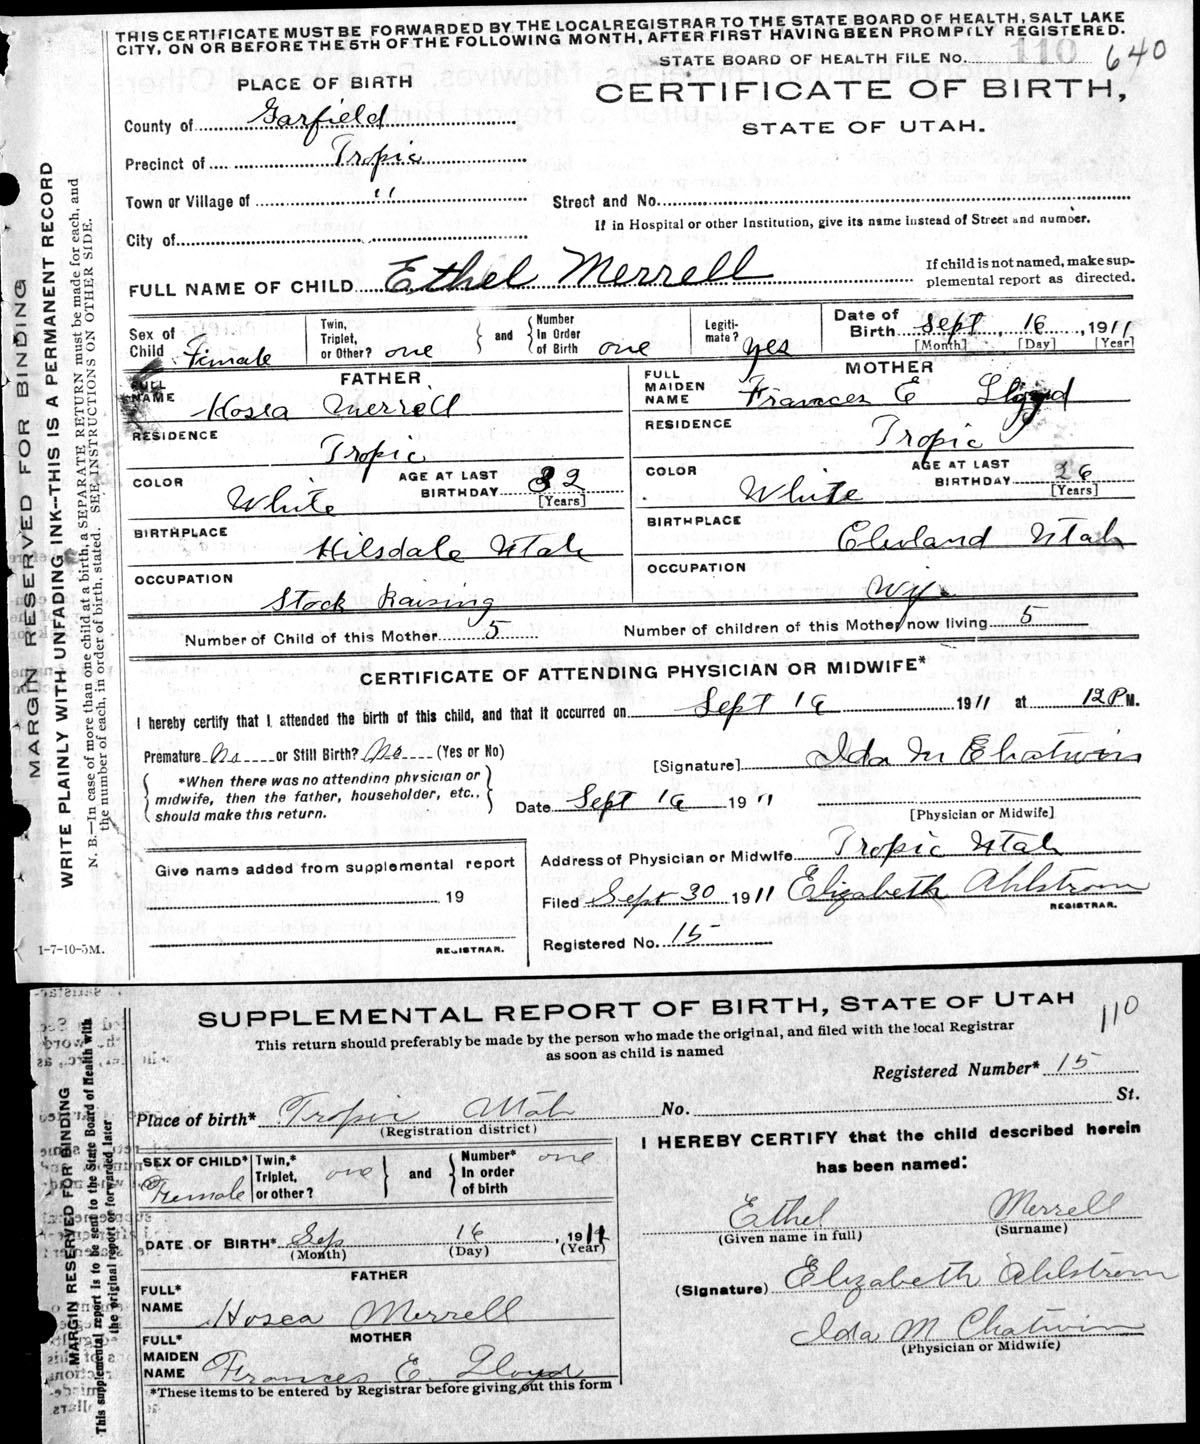 THIS CERTIFICATE MUST BE FORWARDED BY THE LOCAL REGISTRAR TO THE STATE BOARD OF HEALTH, SALT LAKE
CITY, ON OR BEFORE THE 5TH OF THE FOLLOWING MONTH, AFTER FIRST HAVING BEEN PROMPTLY REGISTERED.
STATE BOARD OF HEALTH FILE NO. 110 640
PLACE OF BIRTH
CERTIFICATE OF BIRTH,
STATE OF UTAH.
County of Garfield
Precinct of Tropic
Town or Village of "
Street and No.
If in Hospital or other Institution, give its name instead of Street and number.
City of
FULL NAME OF CHILD Ethel Merrell
If child is not named, make sup-
plemental report as directed.
Sex of Child Fimale
Twin, Triplet, or Other? one
and
Number In Order of Birth one
Legiti-mate? yes
Date of Birth Sept, 16, 1911
[Month] [Day] [Year]
FATHER
FULL NAME Hosea Merrell
RESIDENCE Tropic
COLOR White
AGE AT LAST BIRTHDAY 32
[Years]
BIRTHPLACE Hilsdale Utah
OCCUPATION Stock Raising
MOTHER
FULL MAIDEN NAME Frances E Lloyd
RESIDENCE Tropic
COLOR White
AGE AT LAST BIRTHDAY 26
[Years]
BIRTHPLACE Clevland Utah
OCCUPATION Wife
Number of Child of this Mother 5
Number of children of this Mother now living 5
CERTIFICATE OF ATTENDING PHYSICIAN OR MIDWIFE*
I hereby certify that I attended the birth of this child, and that it occurred on Sept 16 1911 at 12 P M.
Premature No or Still Birth? No (Yes or No)
*When there was no attending physician or
midwife, then the father, householder, etc.,
should make this return.
[Signature] Ida M Chatwin
Date Sept 16 1911
[Physician or Midwife]
Give name added from supplemental report
19
REGISTRAR.
Address of Physician or Midwife Tropic Utah
Filed Sept 30 1911 Elizabeth Ahlstrom
REGISTRAR.
Registered No. 15
1-7-10-5M.
MARGIN RESERVED FOR BINDING
WRITE PLAINLY WITH UNFADING INK--THIS IS A PERMANENT RECORD
N. B.—In case of more than one child at a birth, a SEPARATE RETURN must be made for each, and
the number of each, in order of birth, stated. SEE INSTRUCTIONS ON OTHER SIDE.
SUPPLEMENTAL REPORT OF BIRTH, STATE OF UTAH
110
This return should preferably be made by the person who made the original, and filed with the local Registrar
as soon as child is named
Registered Number* 15
Place of birth* Tropic Utah
(Registration district)
No. St.
SEX OF CHILD* Female
Twin,* Triplet, or other? one
and
Number* In order of birth one
DATE OF BIRTH* Sep 16, 1911
(Month) (Day) (Year)
FATHER
FULL* NAME Hosea Merrell
MOTHER
FULL* MAIDEN NAME Frances E. Lloyd
*These items to be entered by Registrar before giving out this form
I HEREBY CERTIFY that the child described herein
has been named:
Ethel Merrell
(Given name in full) (Surname)
(Signature) Elizabeth Ahlstrom
Ida M Chatwin
(Physician or Midwife)
MARGIN RESERVED FOR BINDING
This supplemental report is to be sent to the State Board of Health with
the original report or forwarded later